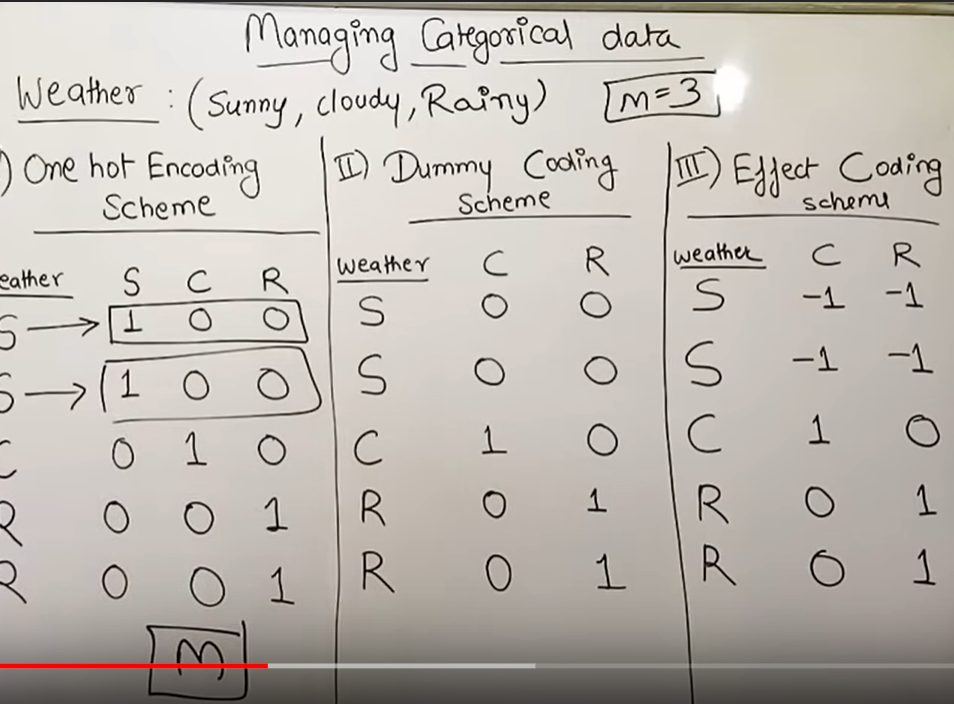 Managing Categorical data
Weather : (Sunny, cloudy, Rainy) m=3
) One hot Encoding
Scheme
eather S C R
S → 1 0 0
S → 1 0 0
C 0 1 0
R 0 0 1
R 0 0 1
m
II) Dummy Coding
Scheme
weather C R
S 0 0
S 0 0
C 1 0
R 0 1
R 0 1
III) Effect Coding
scheme
weather C R
S -1 -1
S -1 -1
C 1 0
R 0 1
R 0 1